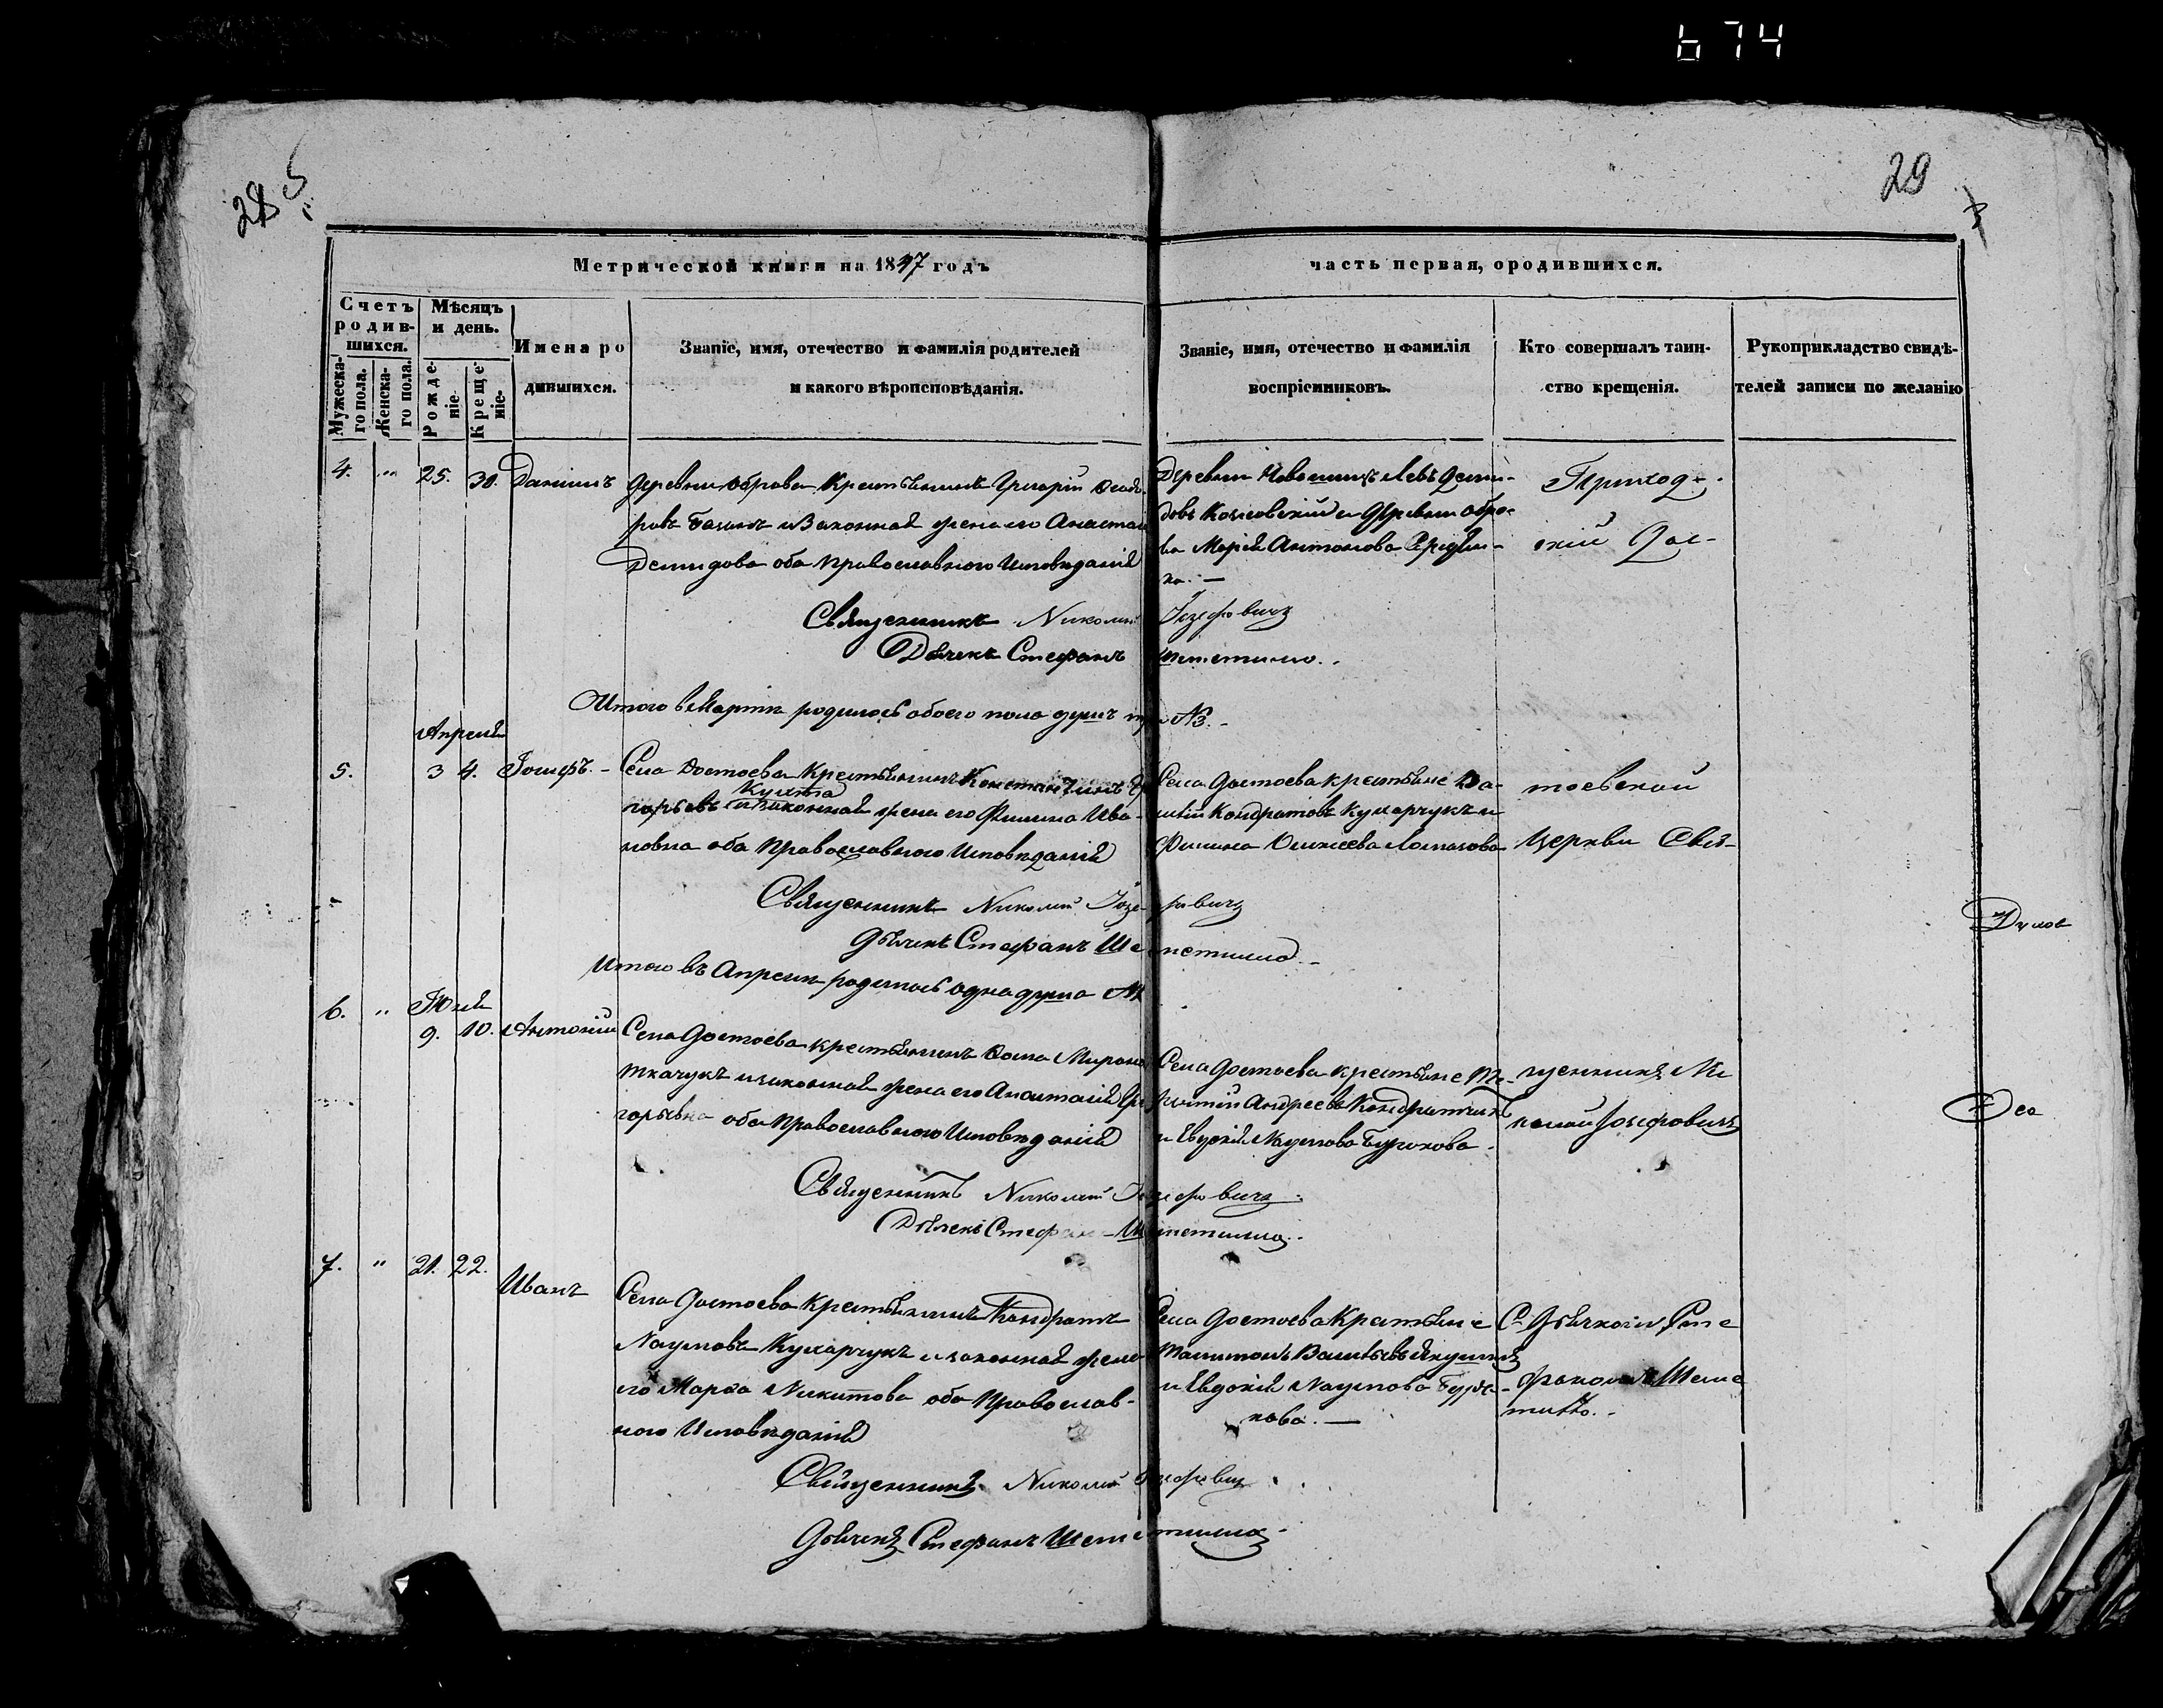 674
28
5
29
Метрической книги на 1847 годъ
часть первая, о родившихся.
Счетъ родив-шихся.
Мужеска-го пола.
Женска-го пола.
Мѣсяцъ и день.
Рожде-ніе.
Креще-ніе.
Имена ро
дившихся.
Званіе, имя, отечество и фамилія родителей
и какого вѣроисповѣданія.
Званіе, имя, отечество и фамилія
воспріемниковъ.
Кто совершалъ таин-
ство крещенія.
Рукоприкладство свидѣ-
телей записи по желанію
4. " 25. 30. Даніилъ
Деревни Обрава Крестьянинъ Григорій
и Законная жена его Анастасія
Демидова оба Православнаго Исповѣданія
Деревни Левъ Деми-
довъ Козловскій и Деревни Обро-
ва Марія Антонова
ка. —
Приход-
скій Дос-
Священникъ Николай Іозефовичъ
Дьячекъ Стефанъ Шепетилло.
Итого въ Мартѣ родилось обоего пола душъ три №3.
Апрель
5. 3 4. Іосифъ.
Села Достоева Крестьянинъ Константинъ Гри-
горьевъ Кулѣба и законная жена его Ива-
новна оба Православнаго Исповѣданія
Села Достоева крестьяне Ва-
силій Кондратовъ Кухарчукъ и
Алексеева
тоевской
Церкви Свя-
Священникъ Николай Іозефовичъ
Дьячекъ Стефанъ Шепетилло.
Итого въ Апрелѣ родилась одна душа №1
6. " Іюнь
9. 10. Антоній
Села Достоева крестьянинъ Миронов
Ткачукъ и законная жена его Анастасія Гри
горьевна оба Православнаго Исповѣданія
Села Достоева крестьяне
Андреевъ
и Евдокія Наумова Буракова.
щенникъ Ни
колай Іозефовичъ
Священникъ Николай Іозефовичъ.
Дьячекъ Стефанъ Шепетилло.
7. " 21. 22.
Иванъ
Села Достоева Крестьянинъ Кондратъ
Наумовъ Кухарчукъ и законная жена
его Марѳа Никитова оба Православ-
наго Исповѣданія
Села Достоева Крестьяне
Васильевъ
и Евдокія Наумова Бура-
кова. —
С Дьячкомъ Сте
фаномъ Шепе
тилло.
Священникъ Николай Іозефовичъ
Дьячекъ Стефанъ Шепетилло.